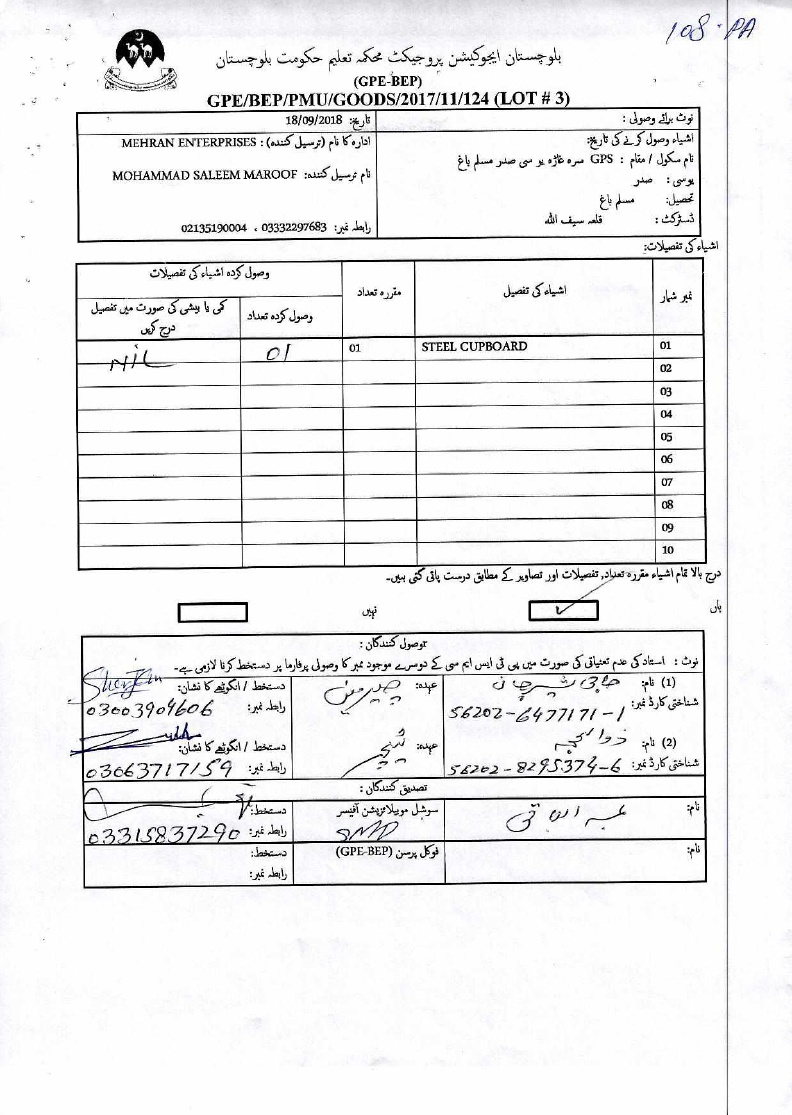 108-PA
بلوچستان ایجوکیشن پروجیکٹ محکمہ تعلیم حکومت بلوچستان
(GPE-BEP)
GPE/BEP/PMU/GOODS/2017/11/124 (LOT # 3)
نوٹ برائے وصولی :
تاریخ: 18/09/2018
اشیاء وصول کرنے کی تاریخ:
ادارہ کا نام (ترسیل کنندہ) : MEHRAN ENTERPRISES
نام سکول / مقام : GPS سرہ غاڑہ یو سی صدر مسلم باغ
نام ترسیل کنندہ: MOHAMMAD SALEEM MAROOF
یو سی : صدر
تحصیل: مسلم باغ
ڈسٹرکٹ : قلعہ سیف اللہ
رابطہ نمبر: 03332297683 ، 02135190004
اشیاء کی تفصیلات:
نمبر شمار
اشیاء کی تفصیل
مقررہ تعداد
وصول کردہ اشیاء کی تفصیلات
وصول کردہ تعداد
کمی یا بیشی کی صورت میں تفصیل درج کریں
01 STEEL CUPBOARD 01 01 NIL
02
03
04
05
06
07
08
09
10
درج بالا تمام اشیاء مقررہ تعداد, تفصیلات اور تصاویر کے مطابق درست پائی گئی ہیں۔
ہاں ✓ نہیں
وصول کنندگان :
نوٹ : استاد کی عدم تعیناتی کی صورت میں پی ٹی ایس ایم سی کے دوسرے موجود ممبر کا وصولی پرفارما پر دستخط کرنا لازمی ہے۔
(1) نام: حاجی شیر جان
عہدہ: چیرمین
دستخط / انگوٹھے کا نشان: SherJan
شناختی کارڈ نمبر: 56202-6477171-1
رابطہ نمبر: 03003909606
(2) نام:
عہدہ: ٹیچر
دستخط / انگوٹھے کا نشان:
شناختی کارڈ نمبر: 56202-8295374-6
رابطہ نمبر: 03063717159
تصدیق کنندگان :
نام:
سوشل موبیلائزیشن آفیسر
دستخط:
SMO
رابطہ نمبر: 03315837290
نام:
فوکل پرسن (GPE-BEP)
دستخط:
رابطہ نمبر: